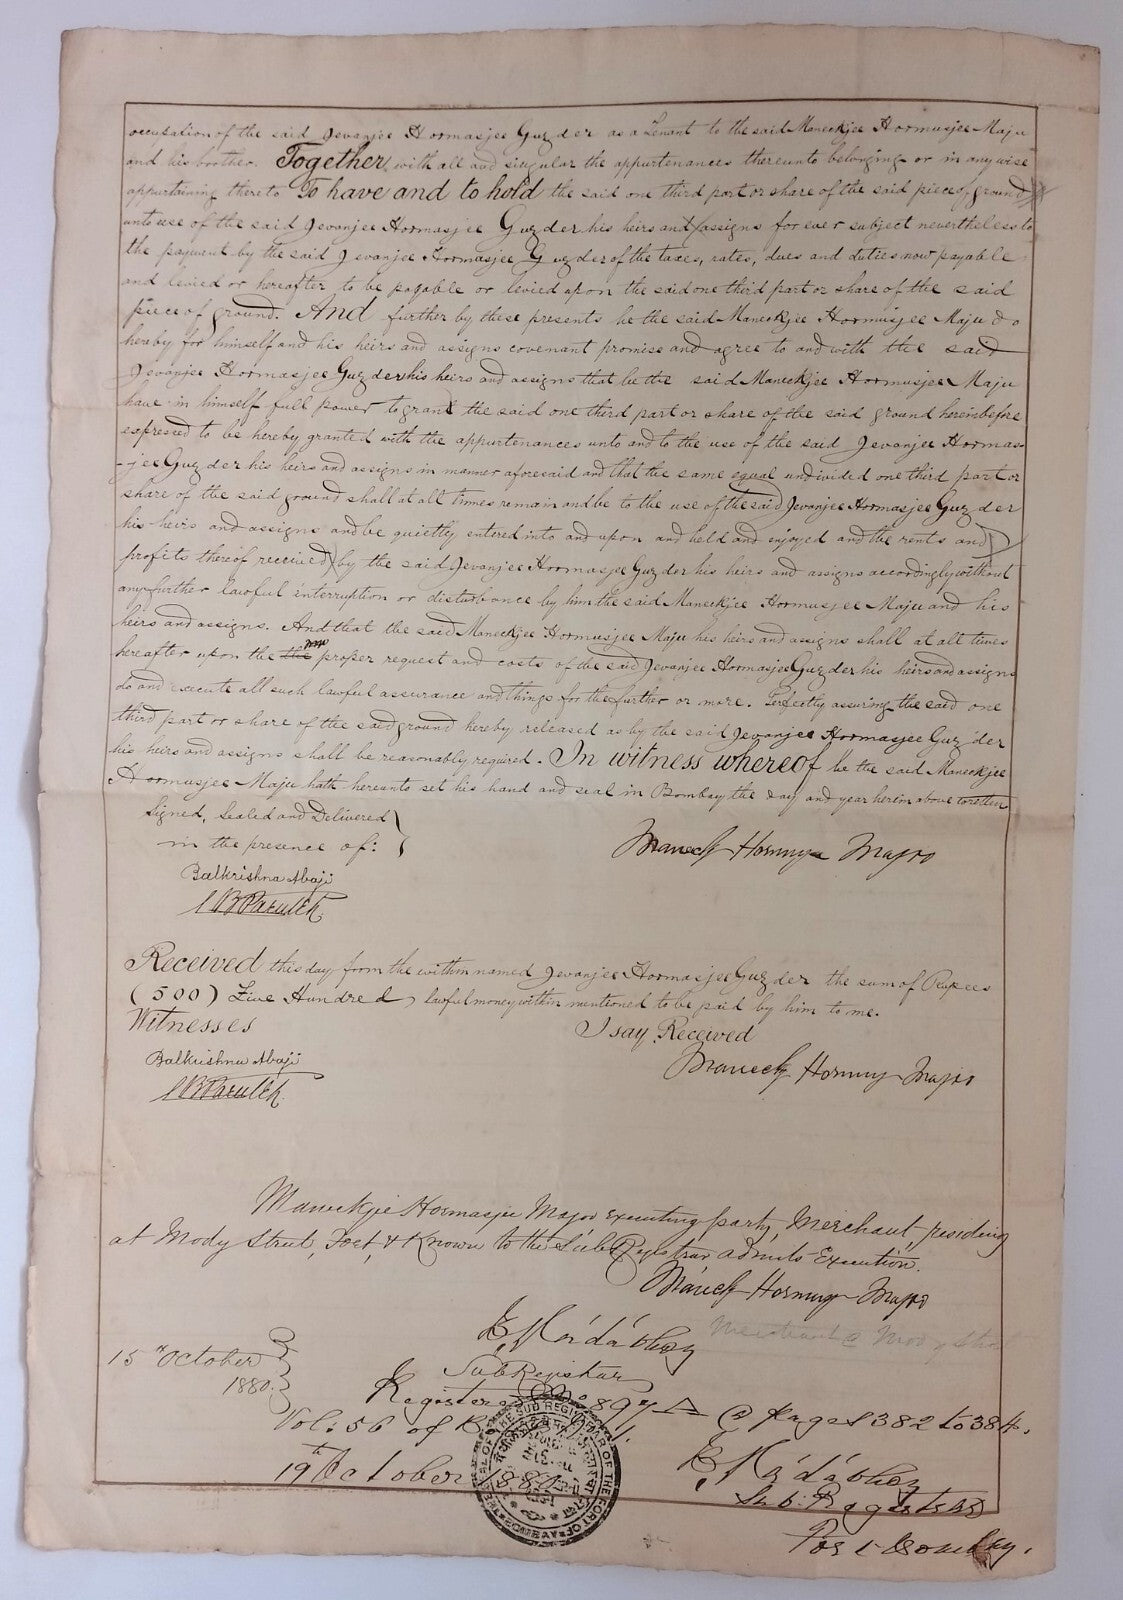 occupation of the said Jevanjee Hormasjee Guzder as a Tenant to the said Maneckjee Hormusjee Maju
and his brother. Together with all and singular the appurtenances thereunto belonging or in any wise
appurtaining thereto To have and to hold the said one third part or share of the said piece of ground
unto use of the said Jevanjee Hormasjee Guzder his heirs and assigns for ever subject nevertheless to
the payment by the said Jevanjee Hormasjee Guzder of the taxes, rates, dues and duties now payable
and levied or hereafter to be payable or levied upon the said one third part or share of the said
piece of ground. And further by these presents he the said Maneckjee Hormusjee Maju do
hereby for himself and his heirs and assigns covenant promise and agree to and with the said
Jevanjee Hormasjee Guzder his heirs and assigns that he the said Maneckjee Hormusjee Maju
have in himself full power to grant the said one third part or share of the said ground hereinbefore
expressed to be hereby granted with the appurtenances unto and to the use of the said Jevanjee Hormas-
-jee Guzder his heirs and assigns in manner aforesaid and that the same equal undivided one third part or
share of the said ground shall at all times remain and be to the use of the said Jevanjee Hormasjee Guzder
his heirs and assigns and be quietly entered into and upon and held and enjoyed and the rents and
profits thereof received by the said Jevanjee Hormasjee Guzder his heirs and assigns accordingly without
any further lawful interruption or disturbance by him the said Maneckjee Hormusjee Maju and his
heirs and assigns. And that the said Maneckjee Hormusjee Maju his heirs and assigns shall at all times
hereafter upon the the proper request and costs of the said Jevanjee Hormasjee Guzder his heirs and assigns
do and execute all such lawful assurance and things for the further or more. Perfectly assuring the said one
third part or share of the said ground hereby released as by the said Jevanjee Hormasjee Guzder
his heirs and assigns shall be reasonably required. In witness whereof he the said Maneckjee
Hormusjee Maju hath hereunto set his hand and seal in Bombay the day and year herein above
Signed, Sealed and Delivered
in the presence of:
Maneck Hormusjee Major
Balkrishna Abaji
Received this day from the within named Jevanjee Hormasjee Guzder the sum of Rupees
(500) Five Hundred, lawful money within mentioned to be paid by him to me.
Witnesses
I say Received
Balkrishna Abaji
Maneck Hormusj Major
Maneckjee Hormasjee Major executing party, Merchant, residing
at Mody Street, Fort, & Known to the Sub Registrar admits Execution.
Maneck Hormusj Major
Merchant @ Mody Street
15th October
1880.
Sub Registrar
Registered No 897 @ pages 382 to 384.
Vol: 56 of Book No 1.
19th October 1880
SEAL OF THE SUB REGISTRAR OF THE FORT OF BOMBAY
Sub: Registrar
Fort Bombay.